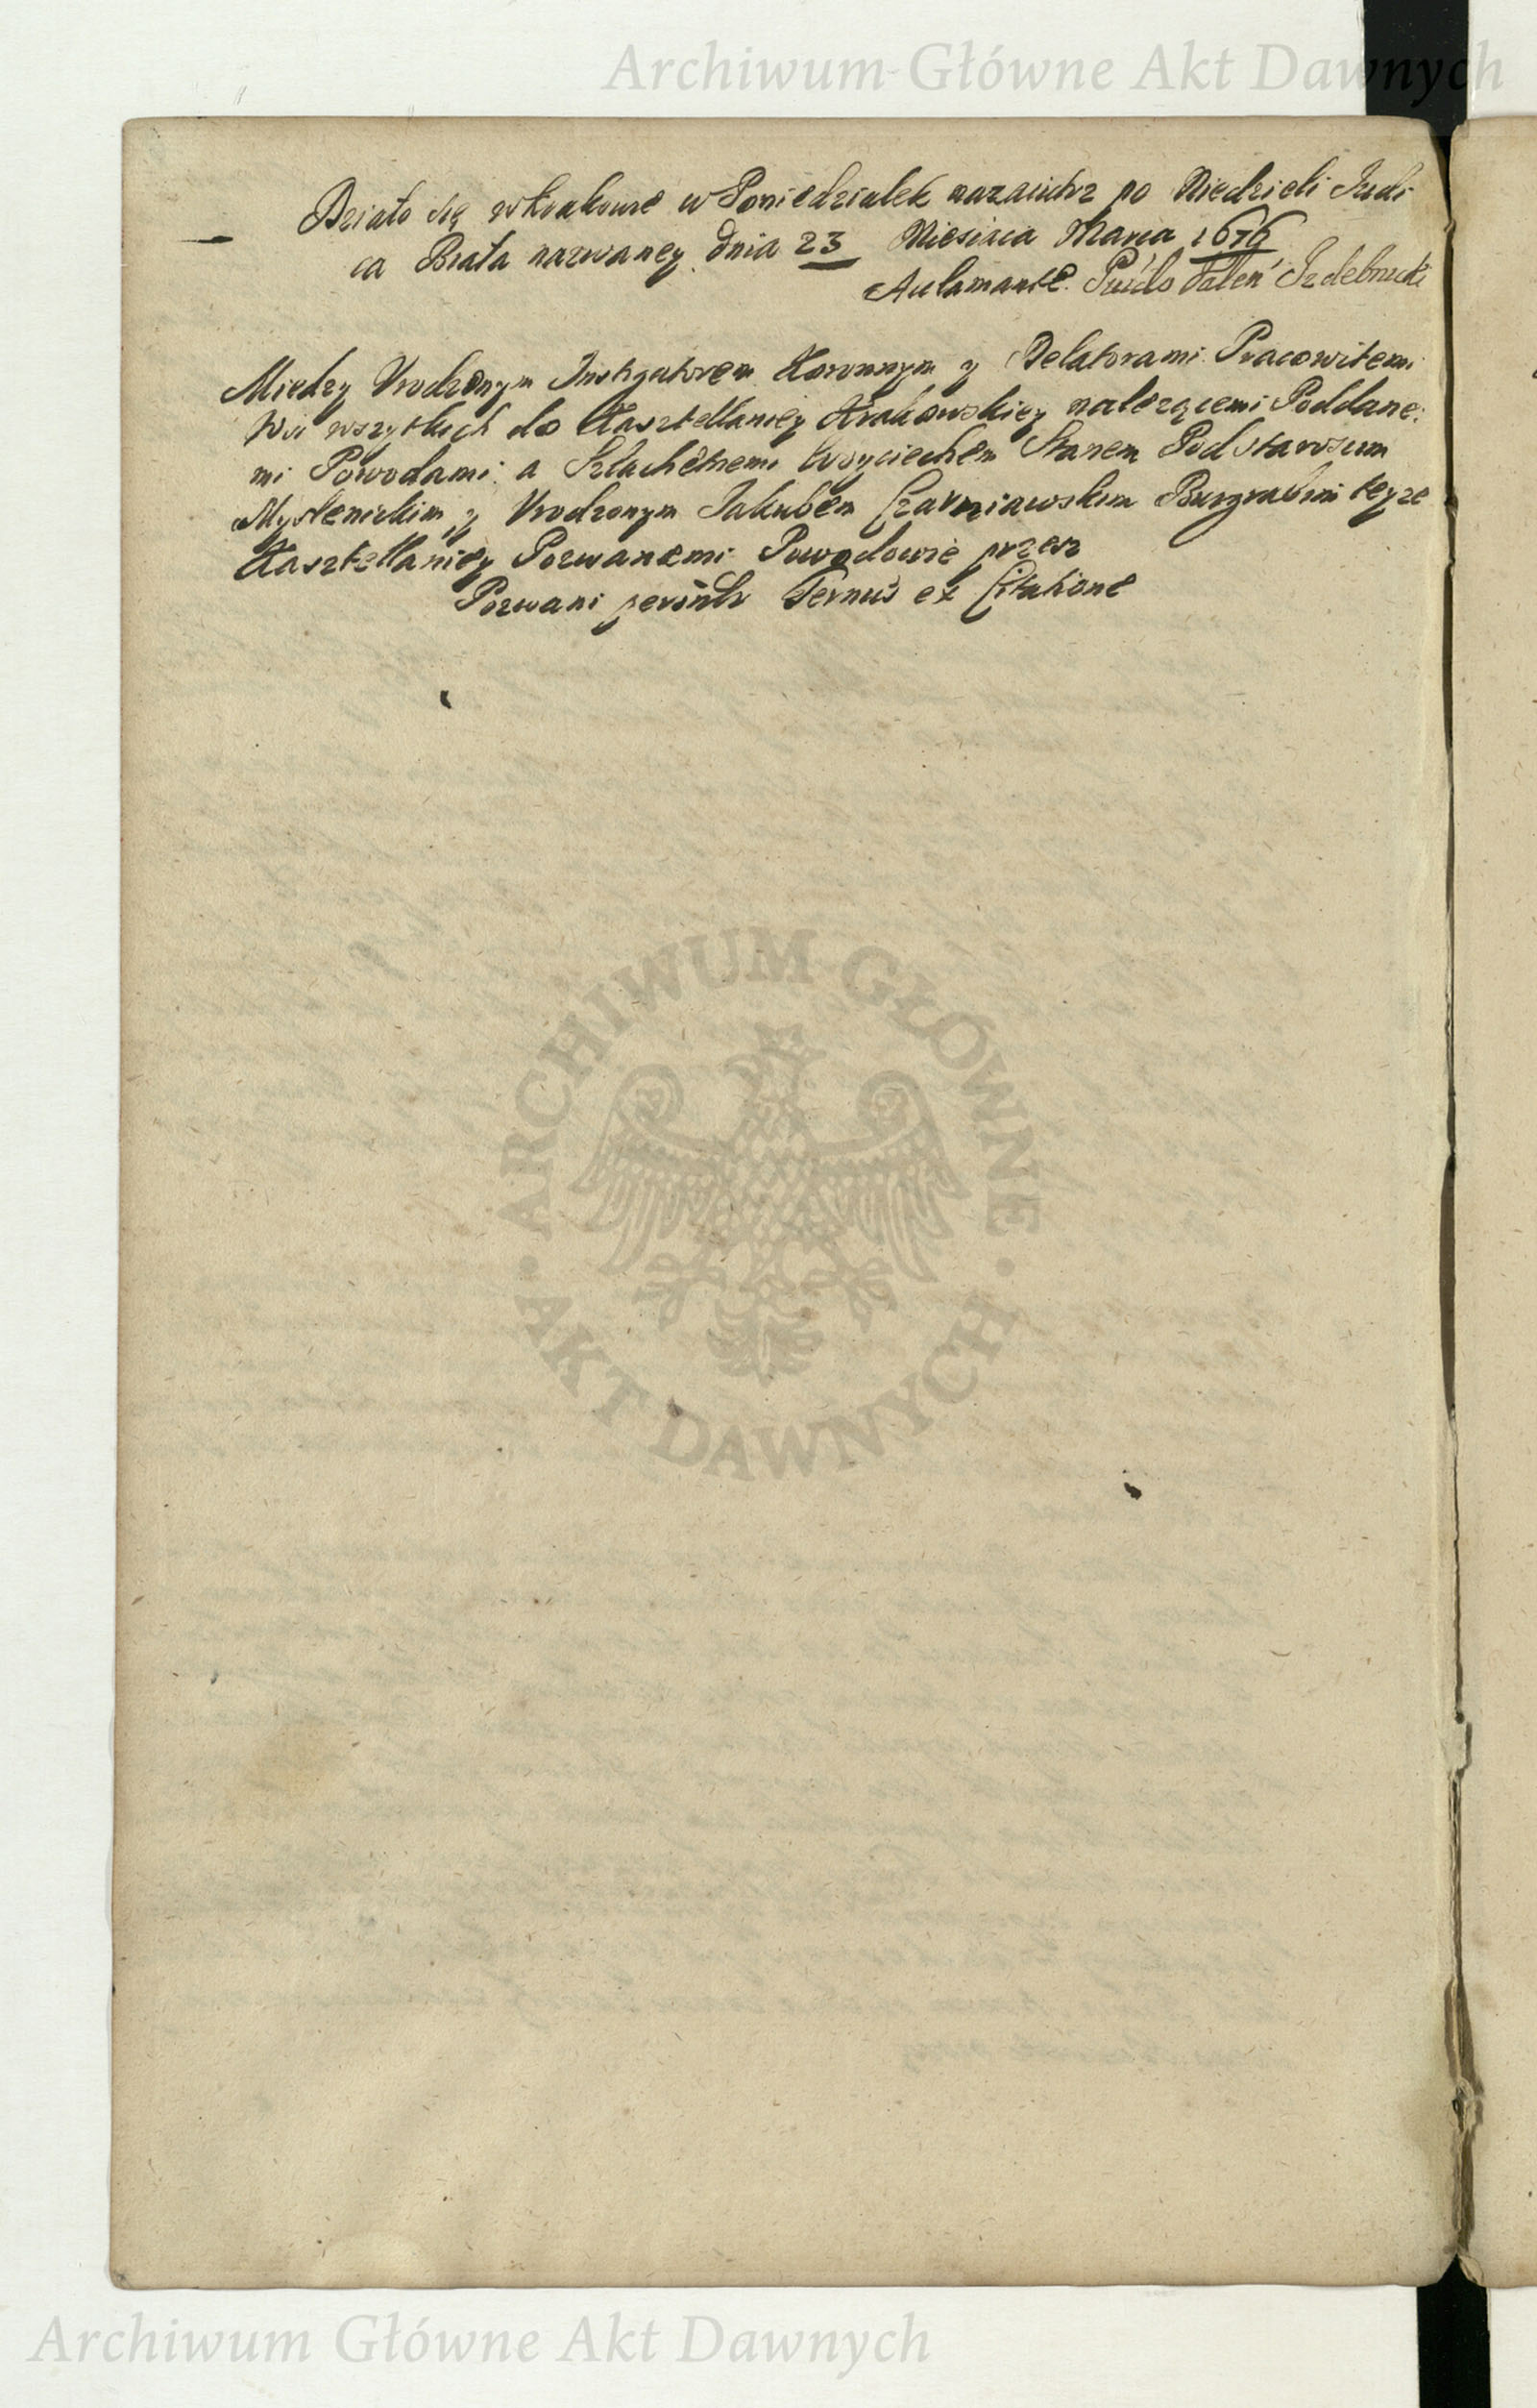 Archiwum Główne Akt Dawnych
Działo się w Krakowie w Poniedziałek nazaiutrz po Niedzieli Judi
ca Biała nazwaney dnia 23 Miesiąca Marca 1676
Aclamante Valen Izdebnicki
Miedzy Vrodzonym Instigatorem Koronnym y Delatorami Pracowitemi
Wsi wszytkich do Kasztellaniey Krakowskiey nalezącemi Poddane:
mi Powodami a Szlachetnemi Woyciechem Stanem Podstaroscim
Myslenickim y Vrodzonym Jakubem Czarniawskim Burgrabim teyze
Kasztellaniey Pozwanemi Powodowie przez
Pozwani Ternus ex Citatione
ARCHIWUM GŁÓWNE
AKT DAWNYCH
Archiwum Główne Akt Dawnych